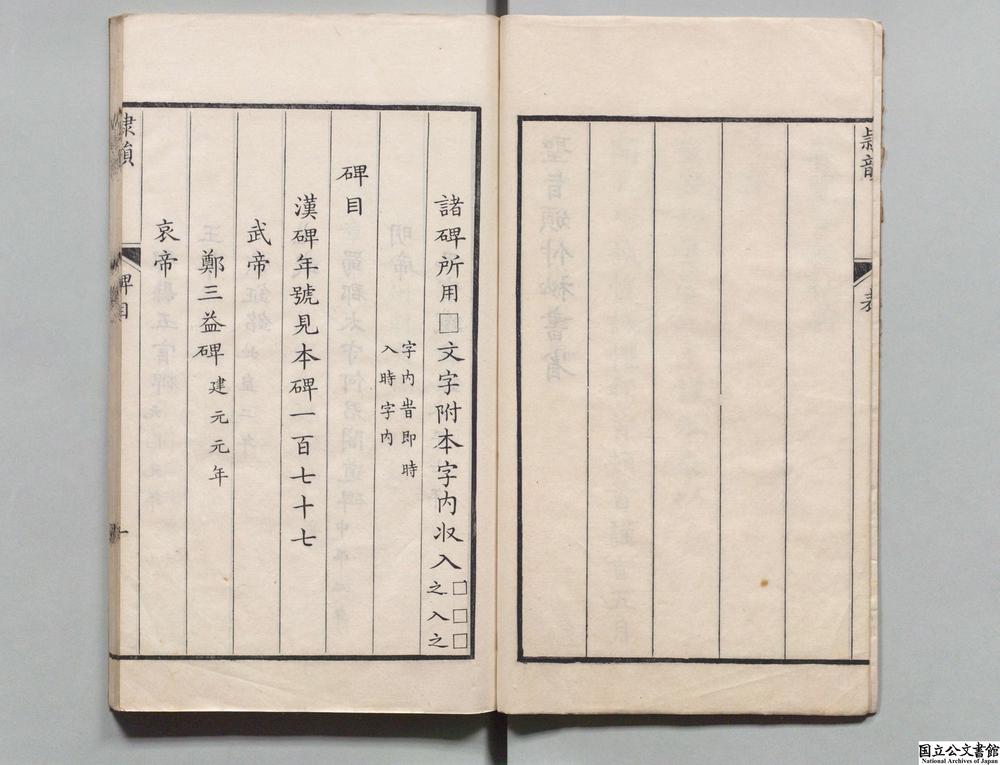 隸韻
表
諸碑所用□文字附本字内収入□□□之入之
字内旹即時
入時字内
碑目
漢碑年號見本碑一百七十七
武帝
鄭三益碑建元元年
哀帝
隸韻
碑目
一
国立公文書館
National Archives of Japan